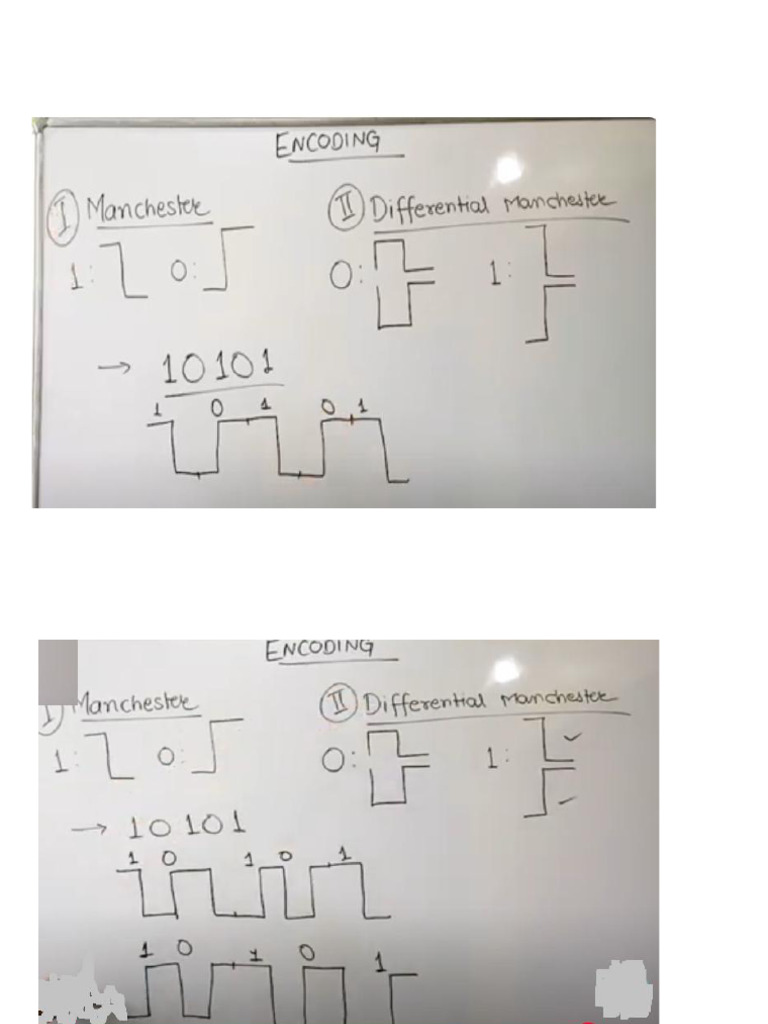 ENCODING
I Manchester
II Differential Manchester
1: 0:
0: 1:
→ 10101
1 0 1 0 1
ENCODING
I) Manchester
II Differential Manchester
1: 0:
0: 1:
→ 10101
1 0 1 0 1
1 0 1 0 1